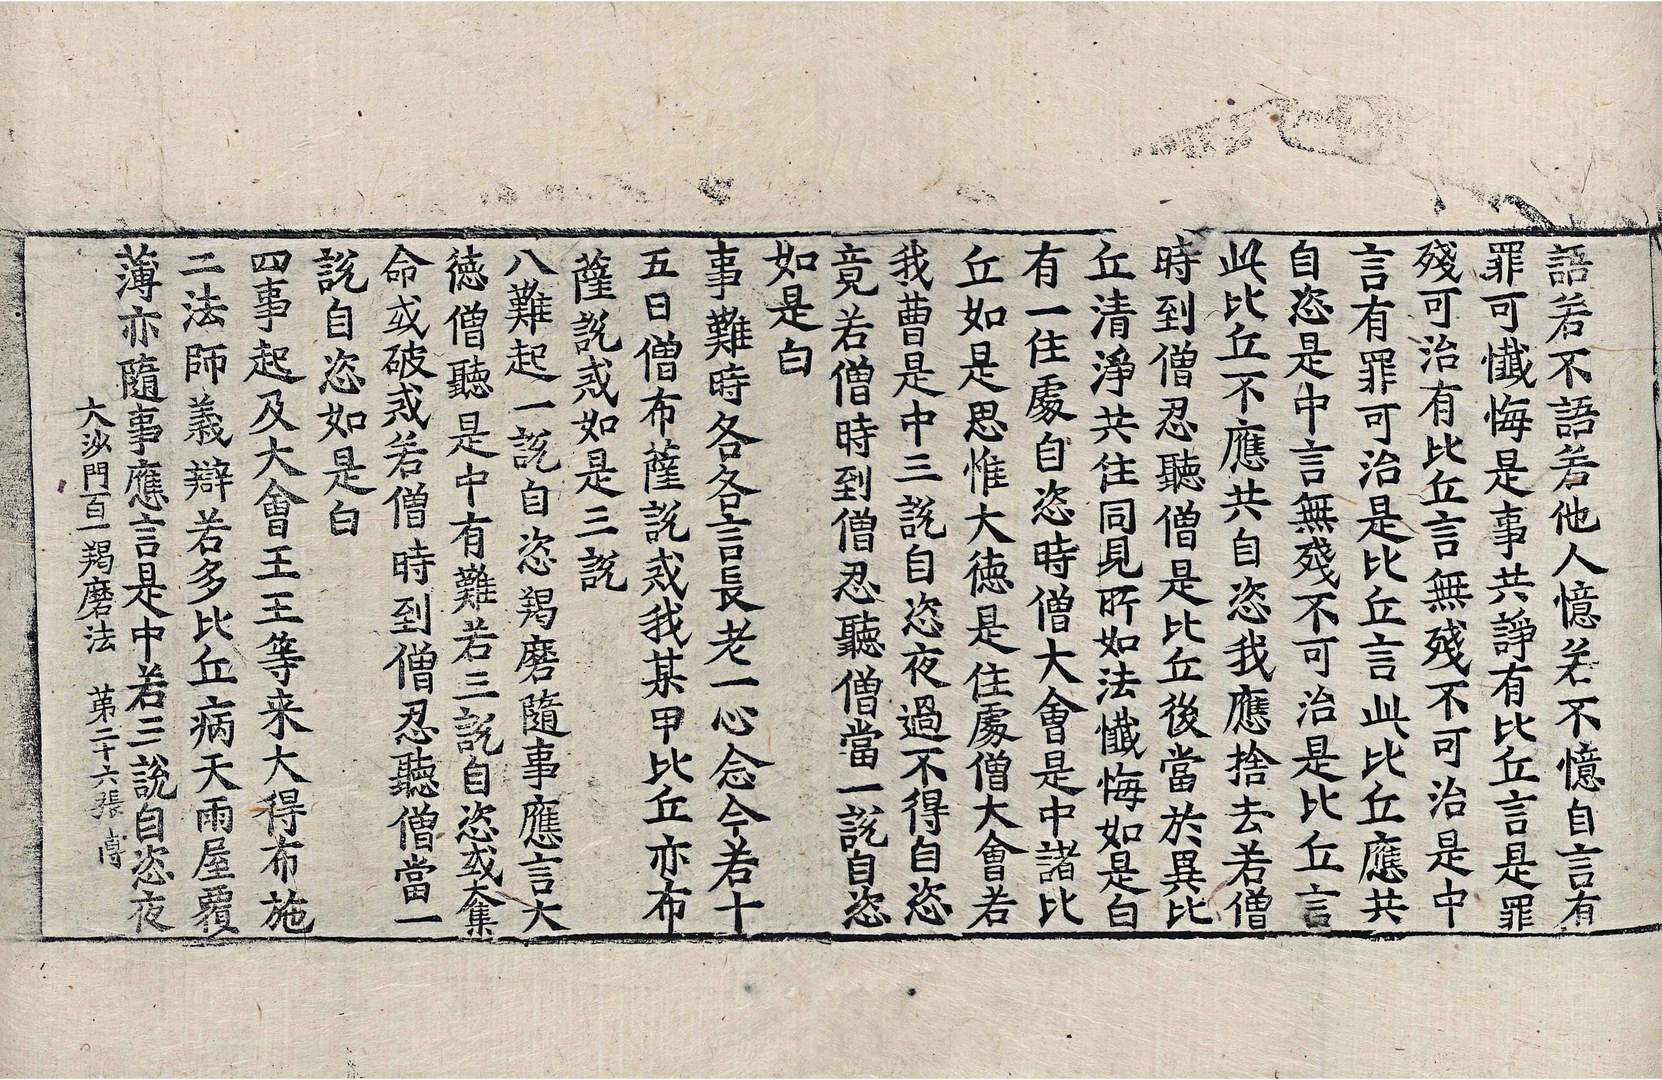 語若不語若他人憶若不憶自言有
罪可懺悔是事共諍有比丘言是罪
殘可治有比丘言無殘不可治是中
言有罪可治是比丘言此比丘應共
自恣是中言無殘不可治是比丘言
此比丘不應共自恣我應捨去若僧
時到僧忍聽僧是比丘後當於異比
丘清淨共住同見所如法懺悔如是白
有一住處自恣時僧大會是中諸比
丘如是思惟大徳是住處僧大會若
我曹是中三說自恣夜過不得自恣
竟若僧時到僧忍聽僧當一說自恣
如是白
事難時各各言長老一心念今若十
五日僧布薩說戒我某甲比丘亦布
薩說戒如是三說
八難起一說自恣羯磨隨事應言大
徳僧聽是中有難若三說自恣或奪
命或破戒若僧時到僧忍聽僧當一
說自恣如是白
四事起及大會王王等来大得布施
二法師義辯若多比丘病天雨屋覆
薄亦隨事應言是中若三說自恣夜
大沙門百一羯磨法 第二十六張